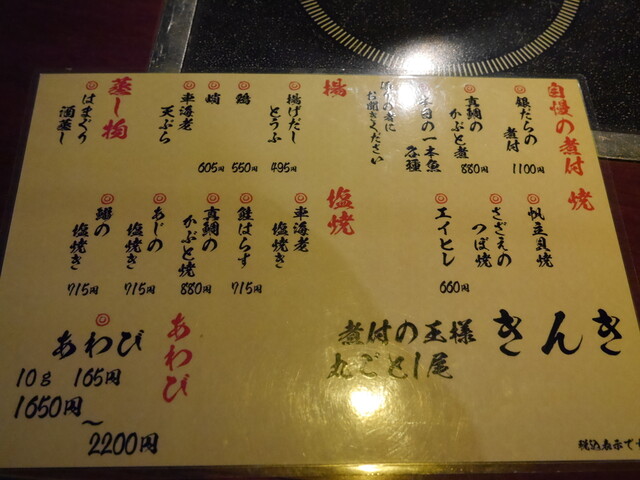 自慢の煮付
銀だらの
煮付
1100円
真鯛の
かぶと煮
880円
本日の一本魚
各種
係りの者に
お聞きください
揚
揚げだし
とうふ
495円
鶏
550円
蛸
605円
車海老
天ぷら
蒸し物
はまぐり
酒蒸し
焼
帆立貝焼
さざえの
つぼ焼
エイヒレ
660円
塩焼
車海老
塩焼き
鮭はらす
715円
真鯛の
かぶと焼
880円
あじの
塩焼き
715円
塩焼き
715円
きんき
煮付の王様
丸ごと1尾
あわび
あわび
10g 165円
1650円
~
2200円
税込表示で